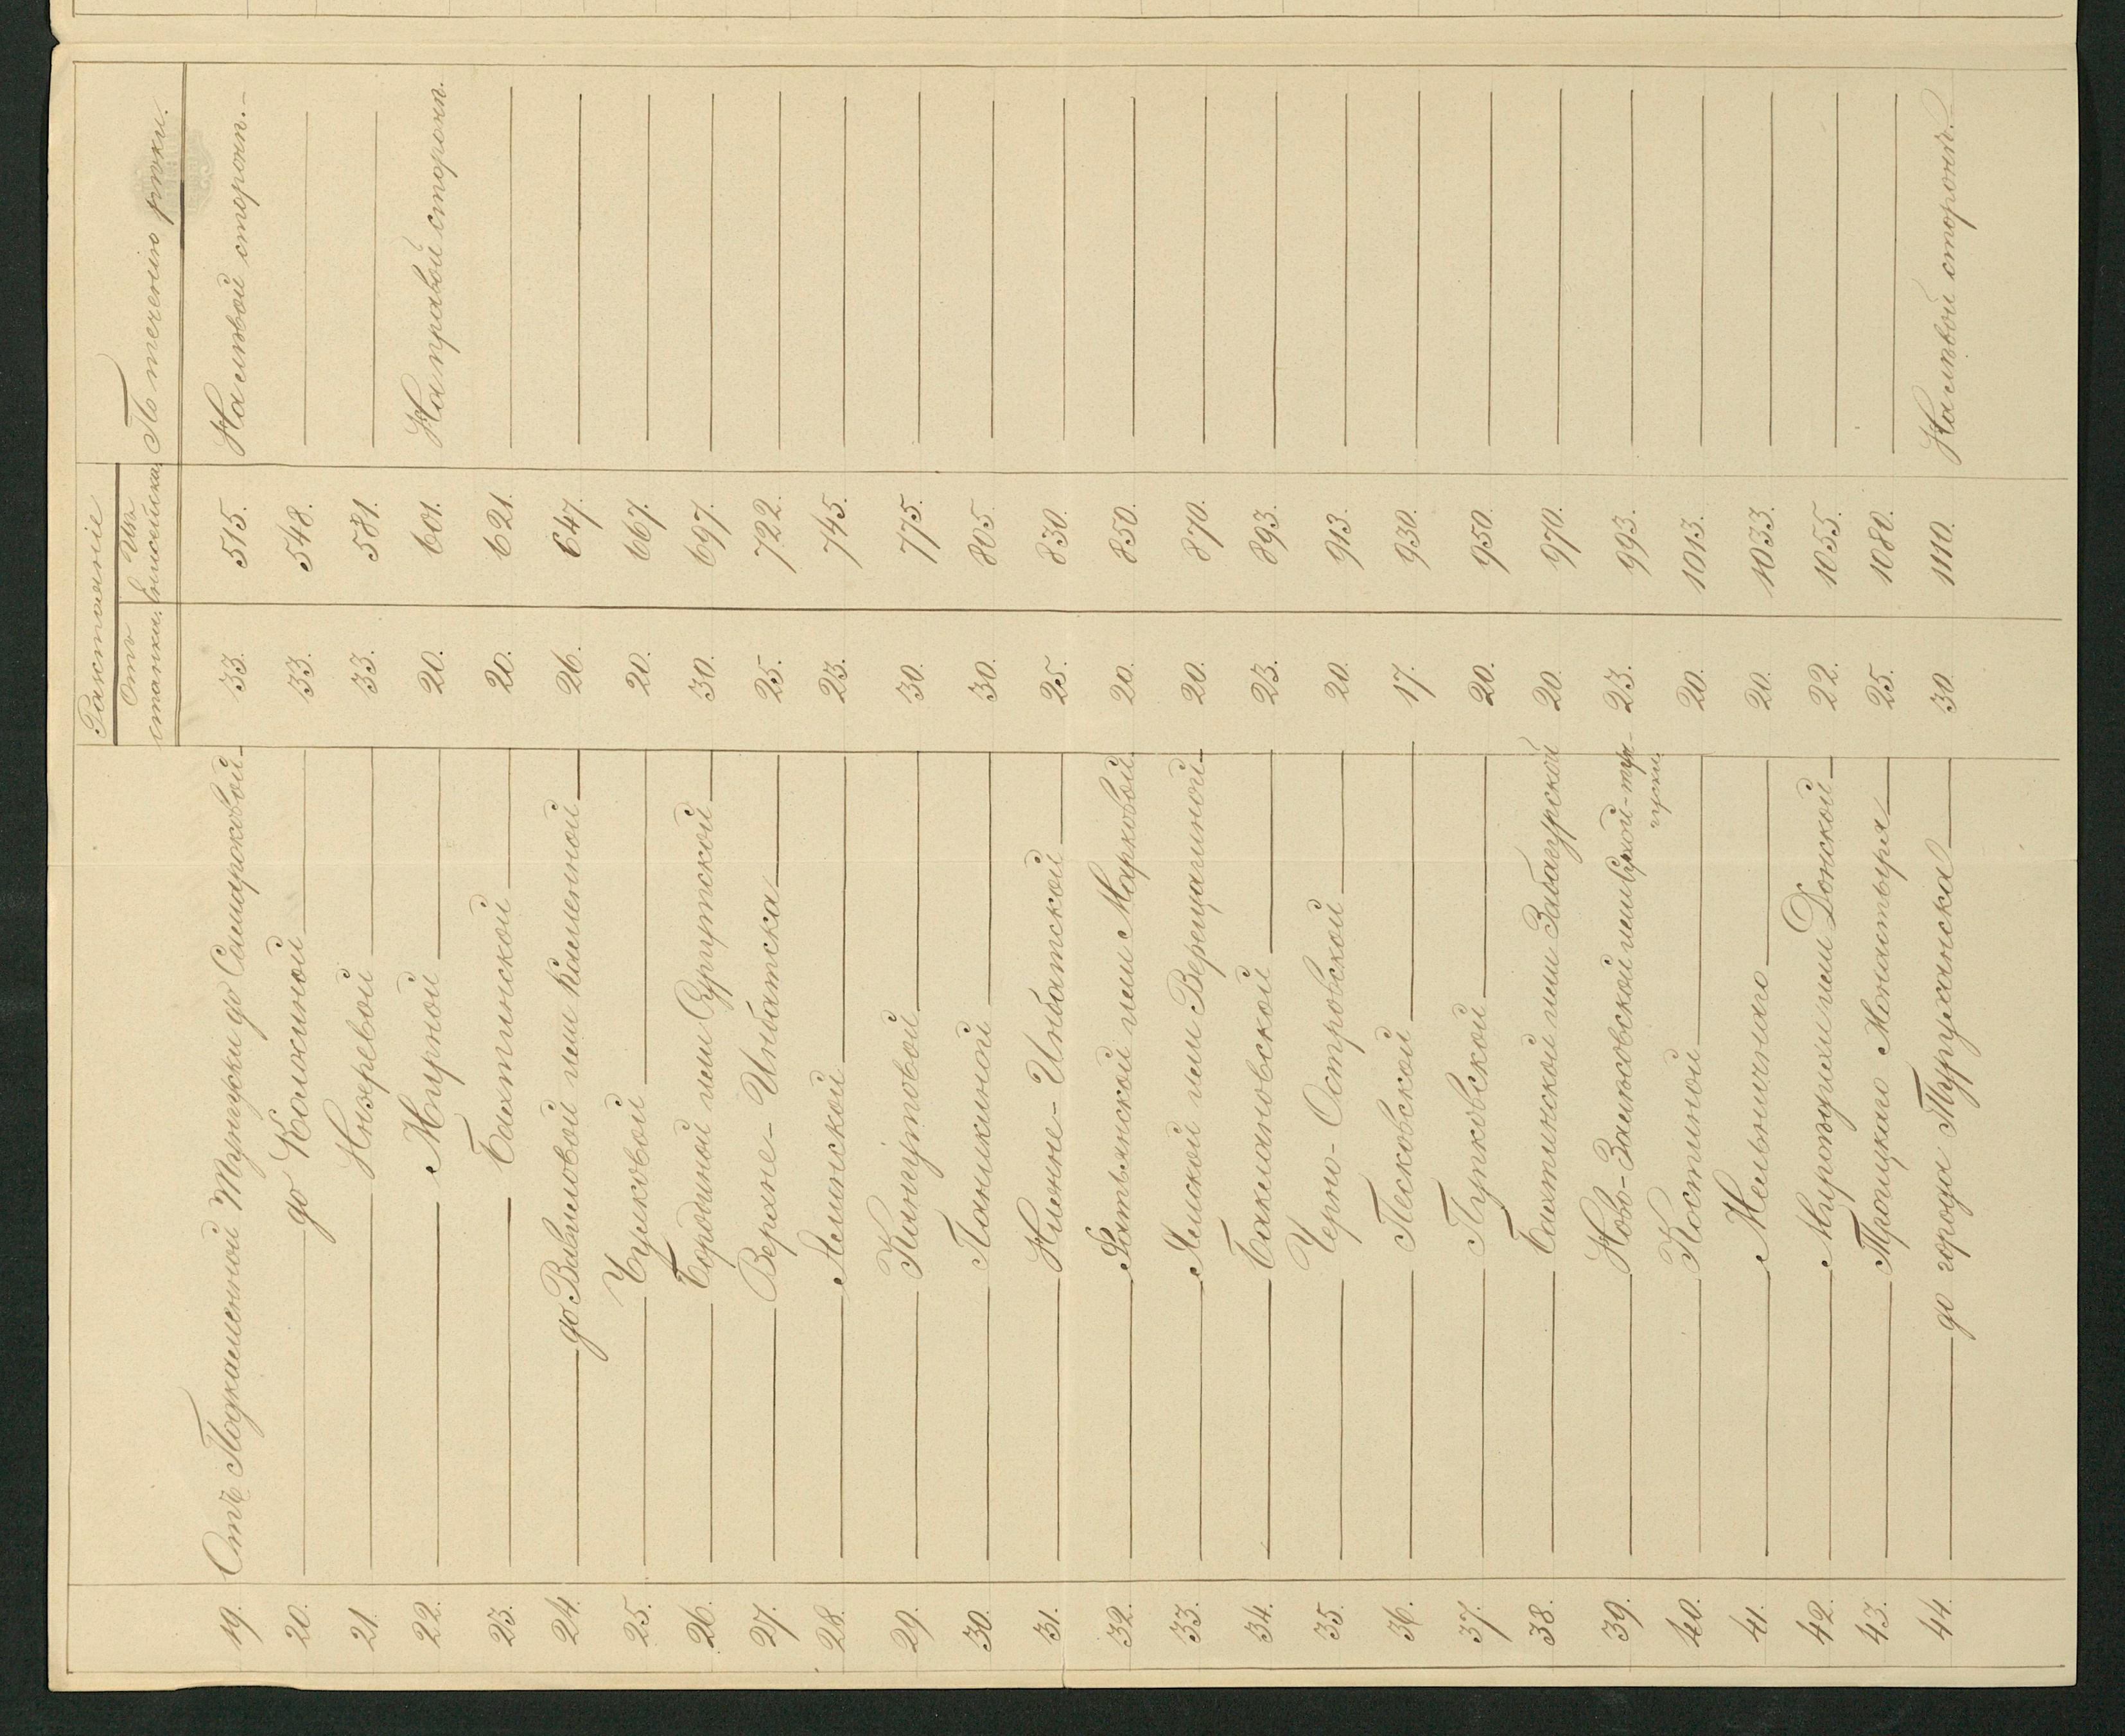 Разстояніе
Отъ станка. Изъ Енисейска. По теченію рѣки.
19. Отъ Подкаменной Тунгуски до Сумароковой 33. 515. На лѣвой сторонѣ.
20. до Комсиной 33. 548.
21. 33. 581.
22. Мирной 20. 601. На правой сторонѣ.
23. Бахтинской 20. 621.
24. до Вавиловой или Каменной 26. 647.
25. Чулковой 20. 667.
26. Бородиной или Сургутской 30. 697.
27. Верхне-Инбатска 25. 722.
28. 23. 745.
29. Кангутовой 30. 775.
30. Панкиной 30. 805.
31. Нижне-Инбатской 25. 830.
32. Фатьянской или Марковой 20. 850.
33. или Верещагиной 20. 870.
34. Баклановской 23. 893.
35. Черно-Островской 20. 913.
36. Песковской 17. 930.
37. Пупковской 20. 950.
38. Бахтинской или Забагурской 20. 970.
39. Ново-Залѣсовской или Сухой-тун-
гуски 23. 993.
40. Костиной 20. 1013.
41. Мельничнаго 20. 1033.
42. Мироѣдихи или Донской 22. 1055.
43. Троицкаго Монастыря 25. 1080.
44. до города Туруханска 30. 1110. На лѣвой сторонѣ.